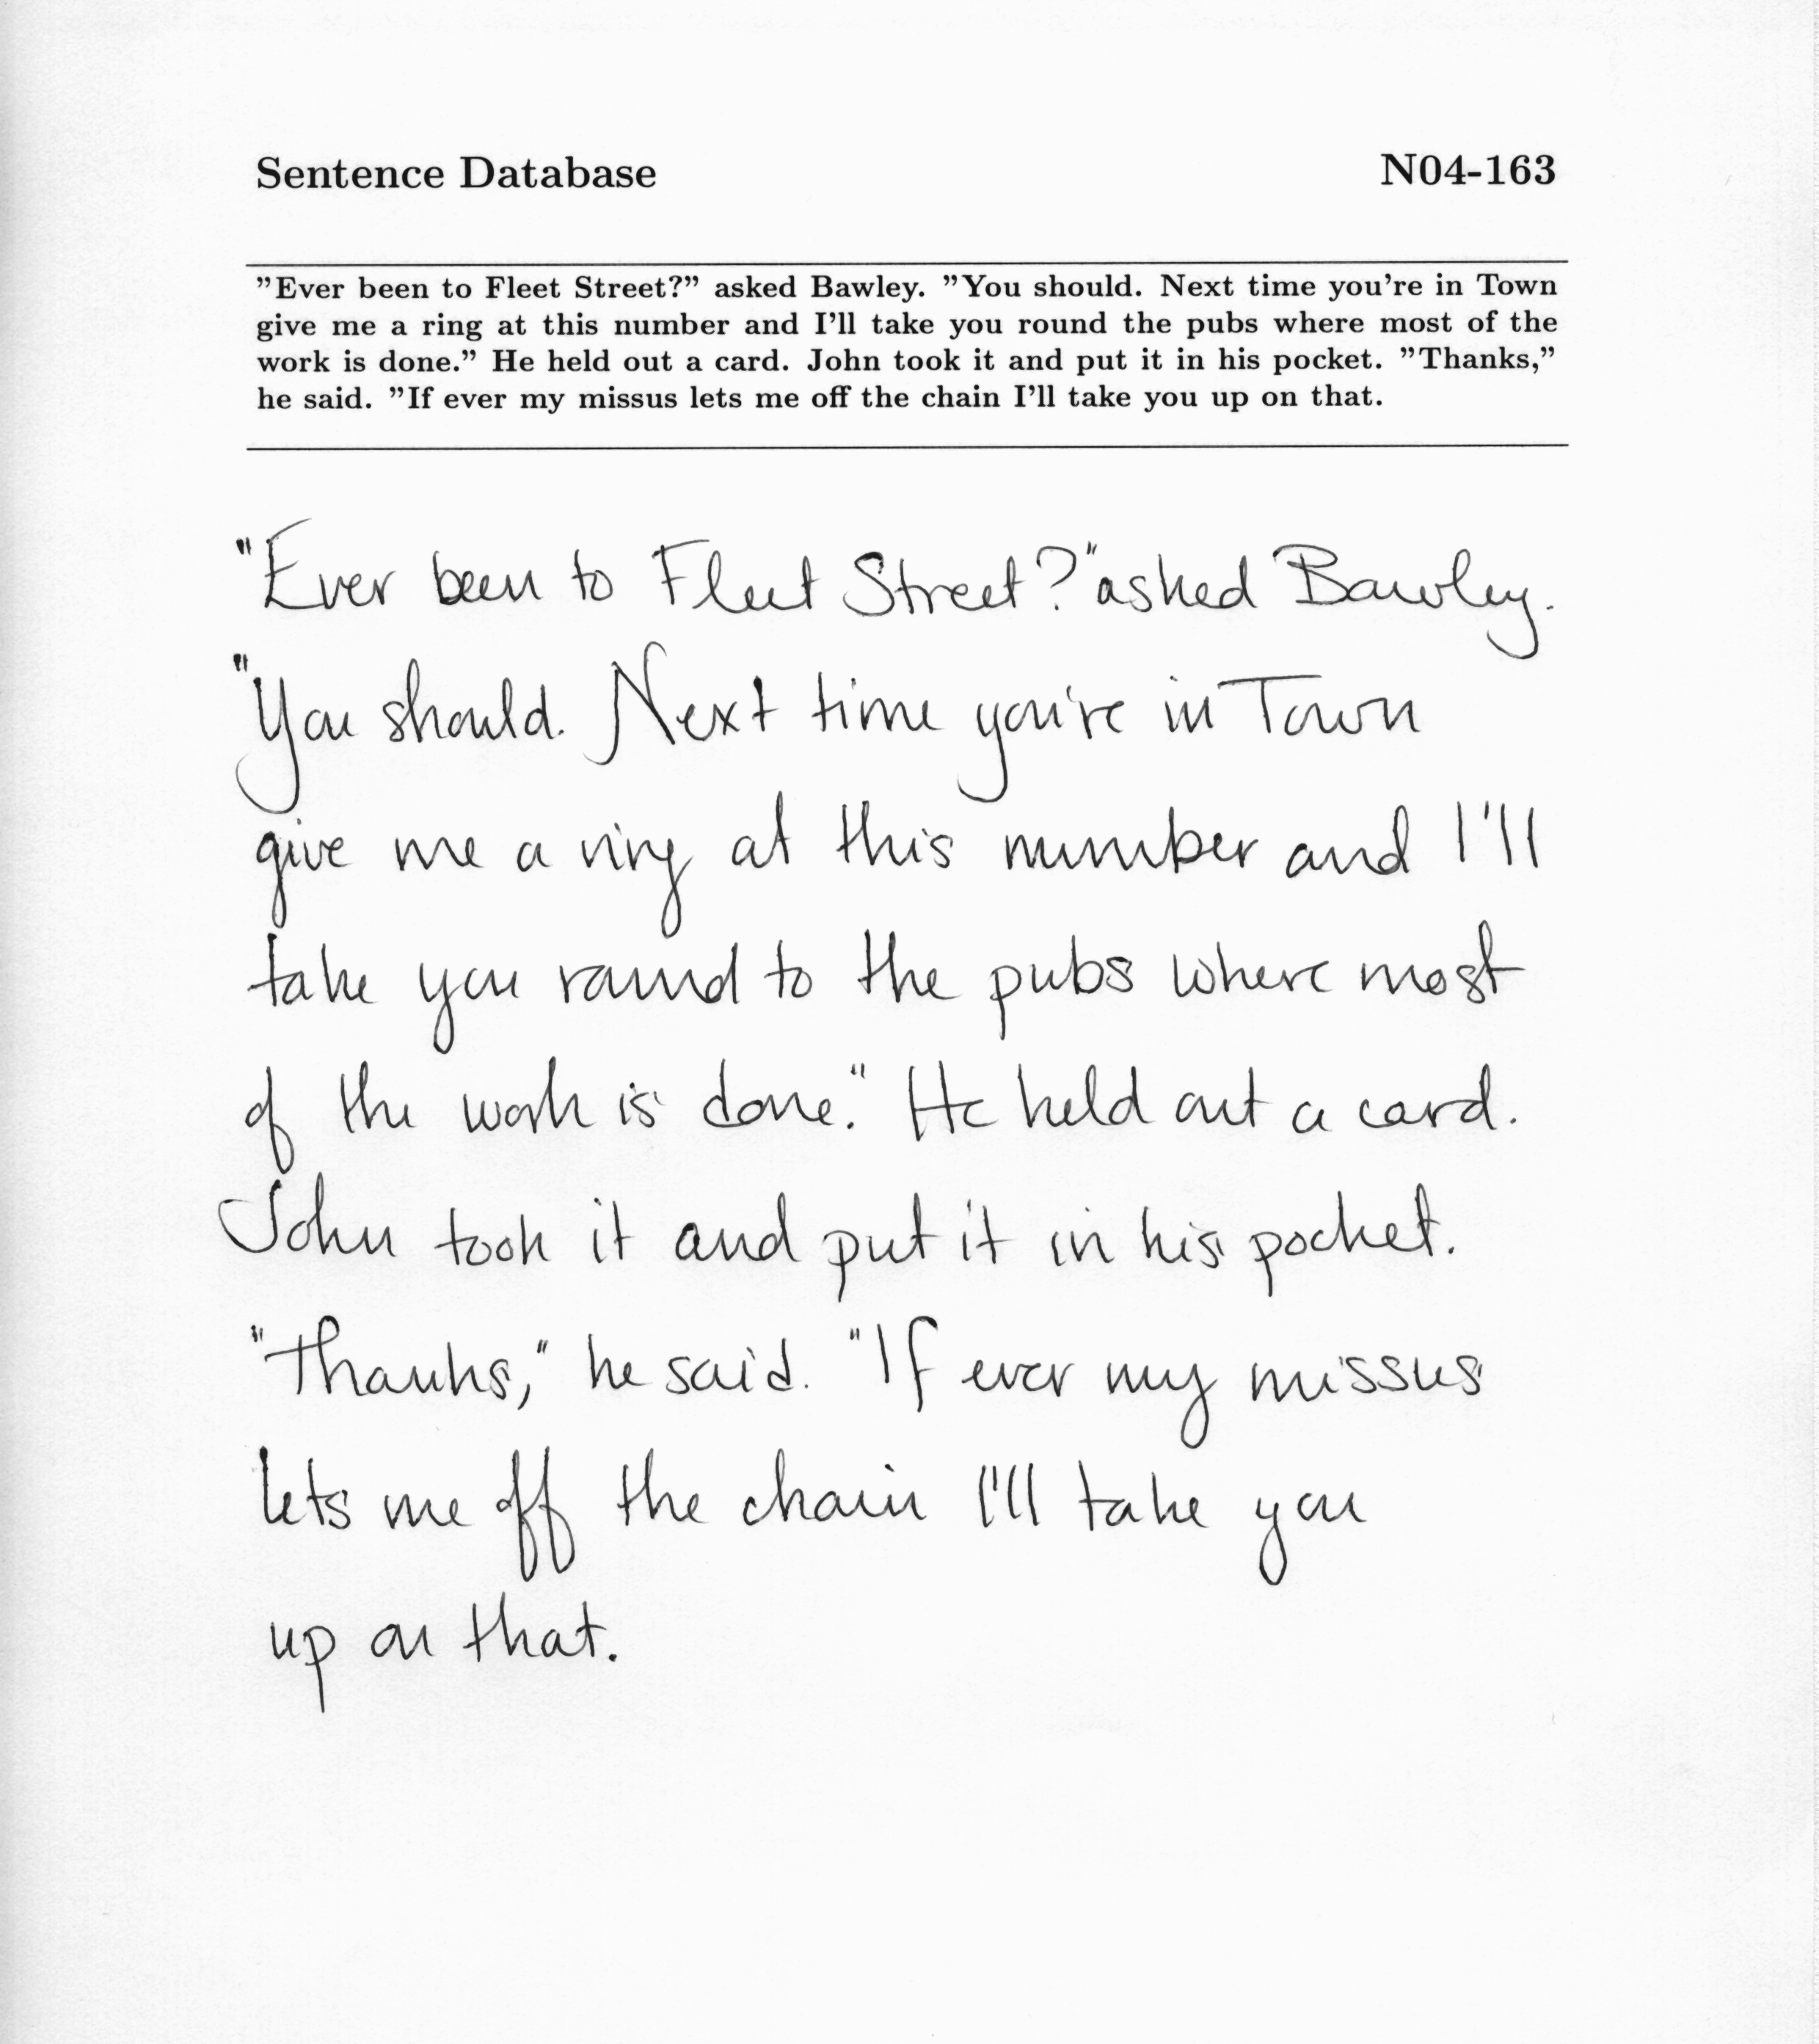 Sentence Database N04-163
"Ever been to Fleet Street?" asked Bawley. "You should. Next time you're in Town
give me a ring at this number and I'll take you round the pubs where most of the
work is done." He held out a card. John took it and put it in his pocket. "Thanks,"
he said. "If ever my missus lets me off the chain I'll take you up on that.
"Ever been to Fleet Street?" asked Bawley.
"You should. Next time you're in Town
give me a ring at this number and I'll
take you round to the pubs where most
of the work is done." He held out a card.
John took it and put it in his pocket.
"Thanks," he said. "If ever my missus
lets me off the chain I'll take you
up on that.